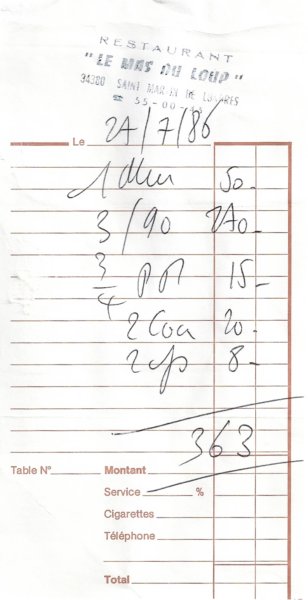 RESTAURANT
"LE MAS DU LOUP"
34380 SAINT MARTIN DE LONDRES
☎ 55-00-
Le 27/7/86
1 Menu 50-
3/90 270-
3/4 15-
2 Coca 20-
2 8-
363
Table N° Montant
Service %
Cigarettes
Téléphone
Total